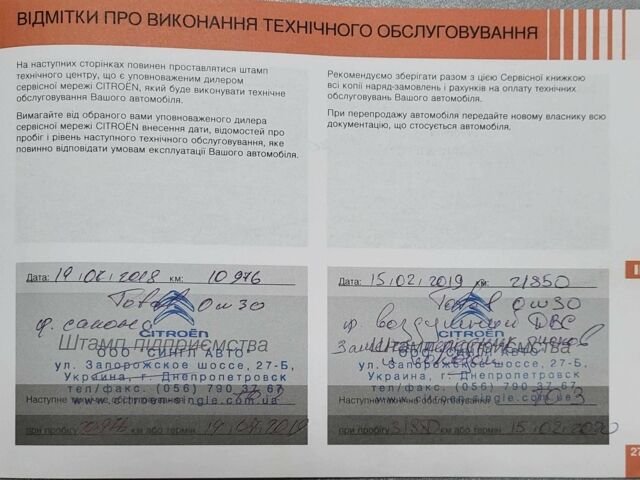 ВІДМІТКИ ПРО ВИКОНАННЯ ТЕХНІЧНОГО ОБСЛУГОВУВАННЯ
На наступних сторінках повинен проставлятися штамп
технічного центру, що є уповноваженим дилером
сервісної мережі CITROËN, який буде виконувати технічне
обслуговування Вашого автомобіля.
Вимагайте від обраного вами уповноваженого дилера
сервісної мережі CITROËN внесення дати, відомостей про
пробіг і рівень наступного технічного обслуговування, яке
повинно відповідати умовам експлуатації Вашого автомобіля.
Рекомендуємо зберігати разом з цією Сервісної книжкою
всі копії наряд-замовлень і рахунків на оплату технічних
обслуговувань Вашого автомобіля.
При перепродажу автомобіля передайте новому власнику всю
документацію, що стосується автомобіля.
Дата: 2018 км: 10976
0w30
ф. салона
CITROËN
Штамп підприємства
ООО "СИНГЛ АВТО"
ул. Запорожское шоссе, 27-Б,
Украина, г. Днепропетровск
тел/факс. (056) 790 37 67
www.citroen-single.com.ua
при пробігу 20976 км або термін 2019
Дата: 15.02.2019 км: 21850
0w30
ф. воздушный ДВС
CITROËN
Штамп підприємства
ООО "СИНГЛ АВТО"
ул. Запорожское шоссе, 27-Б,
Украина, г. Днепропетровск
тел/факс. (056) 790 37 67
www.citroen-single.com.ua
ТО 3
при пробігу 31850 км або термін 15.02.2020
27